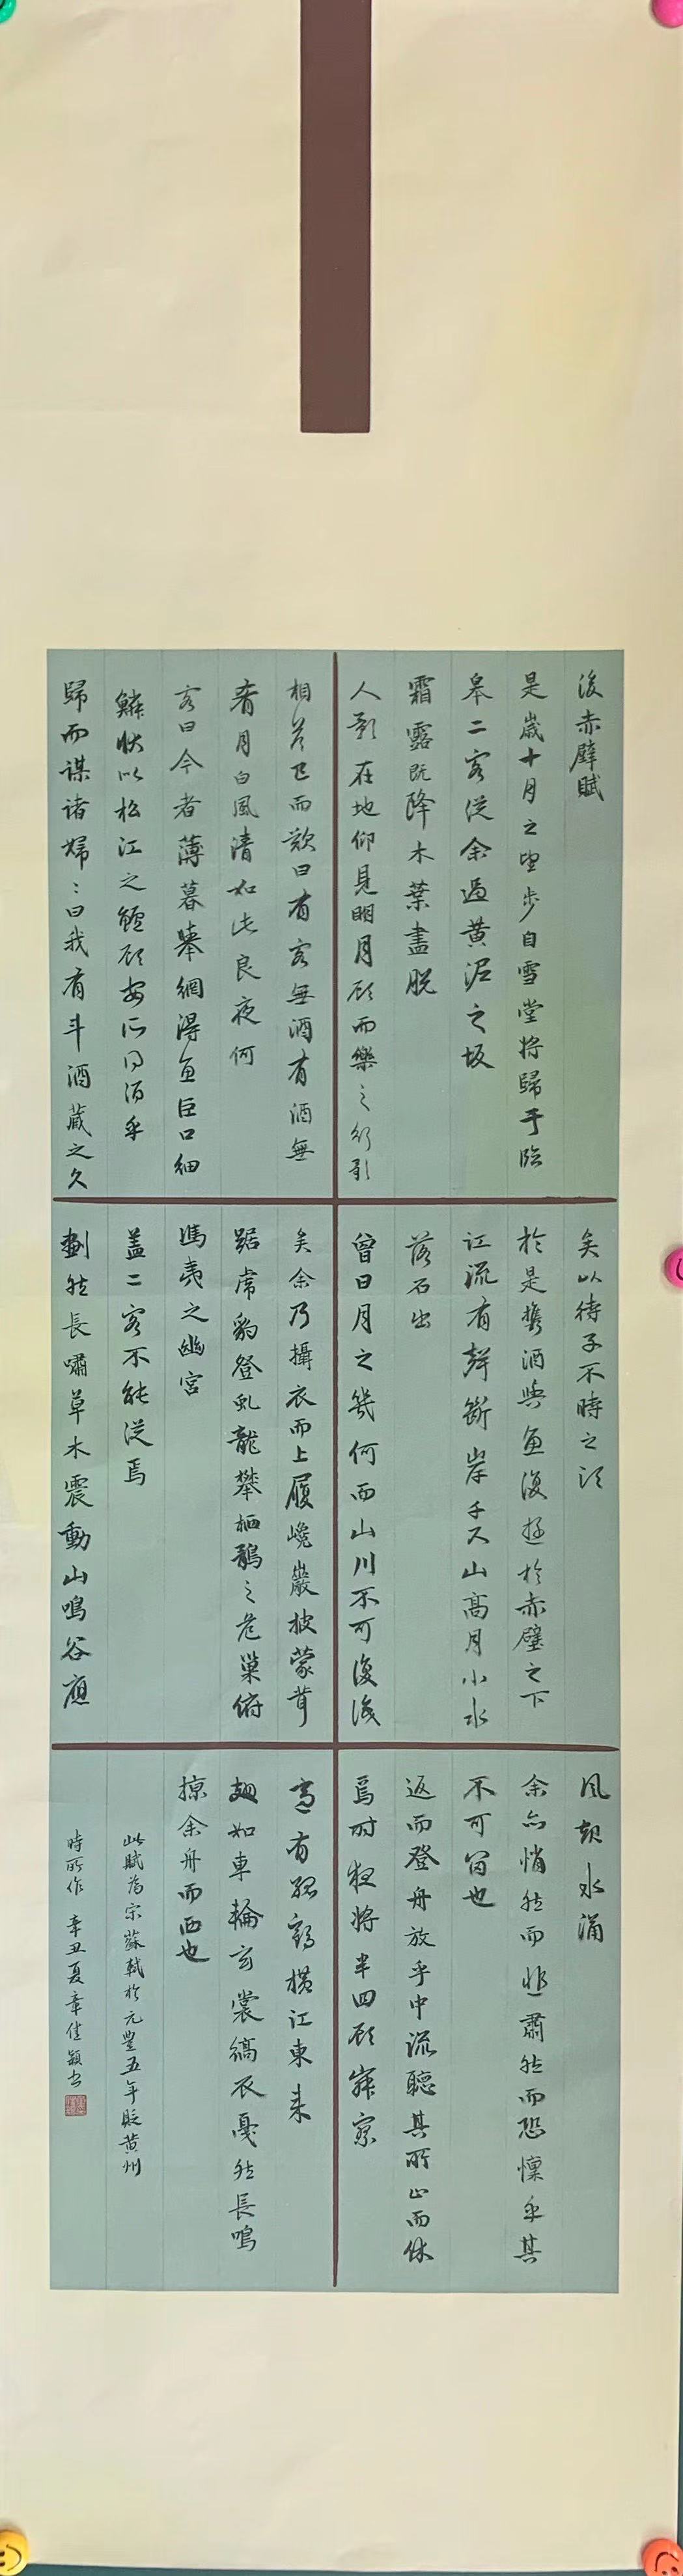 後赤壁賦
是歲十月之望步自雪堂將歸于臨
皋二客從余過黃泥之坂
霜露既降木葉盡脫
人影在地仰見明月顧而樂之行歌
相答已而歎曰有客無酒有酒無
肴月白風清如此良夜何
客曰今者薄暮舉網得魚巨口細
鱗狀似松江之鱸顧安所得酒乎
歸而謀諸婦〻曰我有斗酒藏之久
矣以待子不時之須
於是攜酒與魚復遊於赤壁之下
江流有聲斷岸千尺山高月小水
落石出
曾日月之幾何而山川不可復識
矣余乃攝衣而上履巉巖披蒙茸
踞虎豹登虬龍攀栖鶻之危巢俯
馮夷之幽宮
蓋二客不能從焉
劃然長嘯草木震動山鳴谷應
風起水涌
余亦悄然而悲肅然而恐懍乎其
不可留也
返而登舟放乎中流聽其所止而休
焉時夜將半四顧寂寥
適有孤鶴橫江東來
翅如車輪玄裳縞衣戛然長鳴
掠余舟而西也
此賦為宋蘇軾於元豐五年貶黃州
時所作 辛丑夏章佳穎書